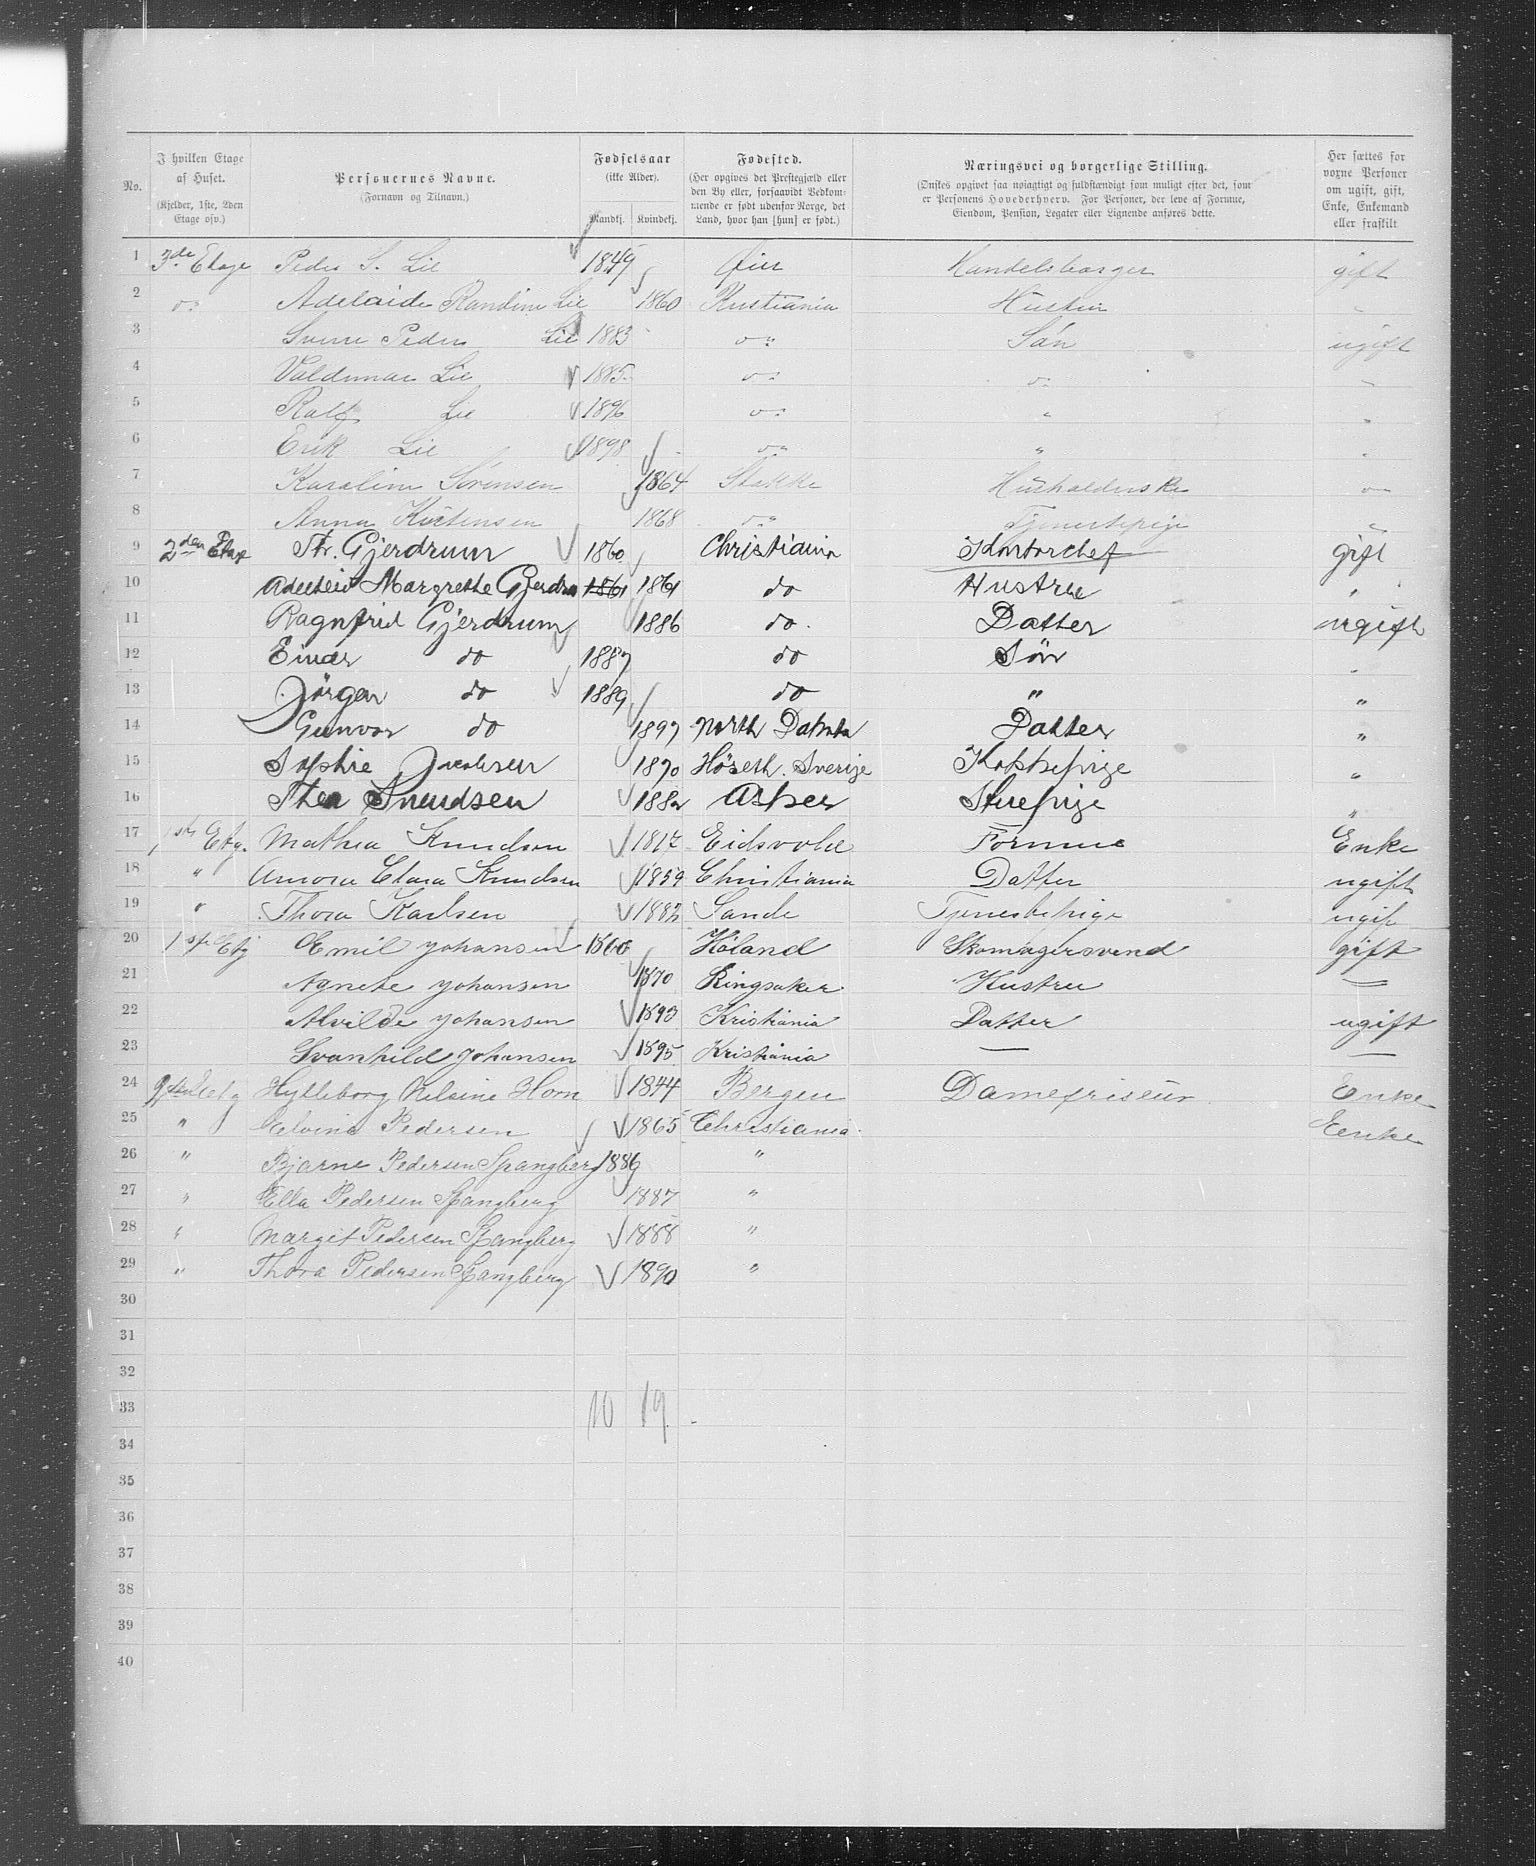 No. | I hvilken Etage af Huset. (Kjelder, 1ste, 2den Etage osv.) | Personernes Navne. (Fornavn og Tilnavn.) | Fødselsaar (ikke Alder). Mandkj. | Kvindekj. | Fødested. (Her opgives det Prestegjæld eller den By eller, forsaavidt Vedkommende er født udenfor Norge, det Land, hvor han [hun] er født.) | Næringsvei og borgerlige Stilling. (Ønskes opgivet saa nøiagtigt og fuldstændigt som muligt efter det, som er Personens Hovederhverv. For Personer, der leve af Formue, Eiendom, Pension, Legater eller Lignende anføres dette. | Her sættes for voxne Personer om ugift, gift, Enke, Enkemand eller fraskilt
1 3de Etage Peder S. Lie 1849 Handelsborger gift
2 do Adelaide Randine Lie 1860 Kristiania Hustru
3 Sverre Peder Lie 1883 do Søn ugift
4 Valdemar Lie 1885 do do
5 Rolf Lie 1896 do "
6 Erik Lie 1898 do "
7 Karoline Sørensen 1864 Stokke Husholderske
8 Anna Kristensen 1868 do Tjenestepige
9 2den Etage Thr. Gjerdrum 1860 Christiania Kontorchef gift
10 Margrethe Gjerdrum 1861 1861 do Hustrue "
11 Ragnfrid Gjerdrum 1886 do. Datter ugift
12 Einar do 1887 do Sön
13 Jörgen do 1889 do " "
14 Gunvor do 1897 North Dakota Datter "
15 Sophie Jacobsen 1870 Sverige Kokkepige "
16 Thea Knudsen 1882 Asker Stuepige "
17 1ste Etg. Mathea Knudsen 1817 Eidsvold Formue Enke
18 " Clara Knudsen 1859 Christiania Datter ugift
19 " Thora Karlsen 1882 Sande Tjenestepige ugift
20 1ste Etg Emil Johansen 1860 Høland Skomagersvend gift
21 Agnete Johansen 1870 Ringsaker Hustru —
22 Alvilde Johansen 1893 Kristiania Datter ugift
23 Svanhild Johansen 1895 Kristiania — —
24 Hylleborg Nilsine Horn 1844 Bergen Damefriseur Enke
25 " Elvine Pedersen 1865 Christiania. Eenke
26 " Bjarne Pedersen Spangberg 1886 "
27 " Ella Pedersen Spangberg 1887 "
28 " Margit Pedersen Spangberg 1888 "
29 " Thora Pedersen Spangberg 1890 "
30
31
32
33 10 19
34
35
36
37
38
39
40